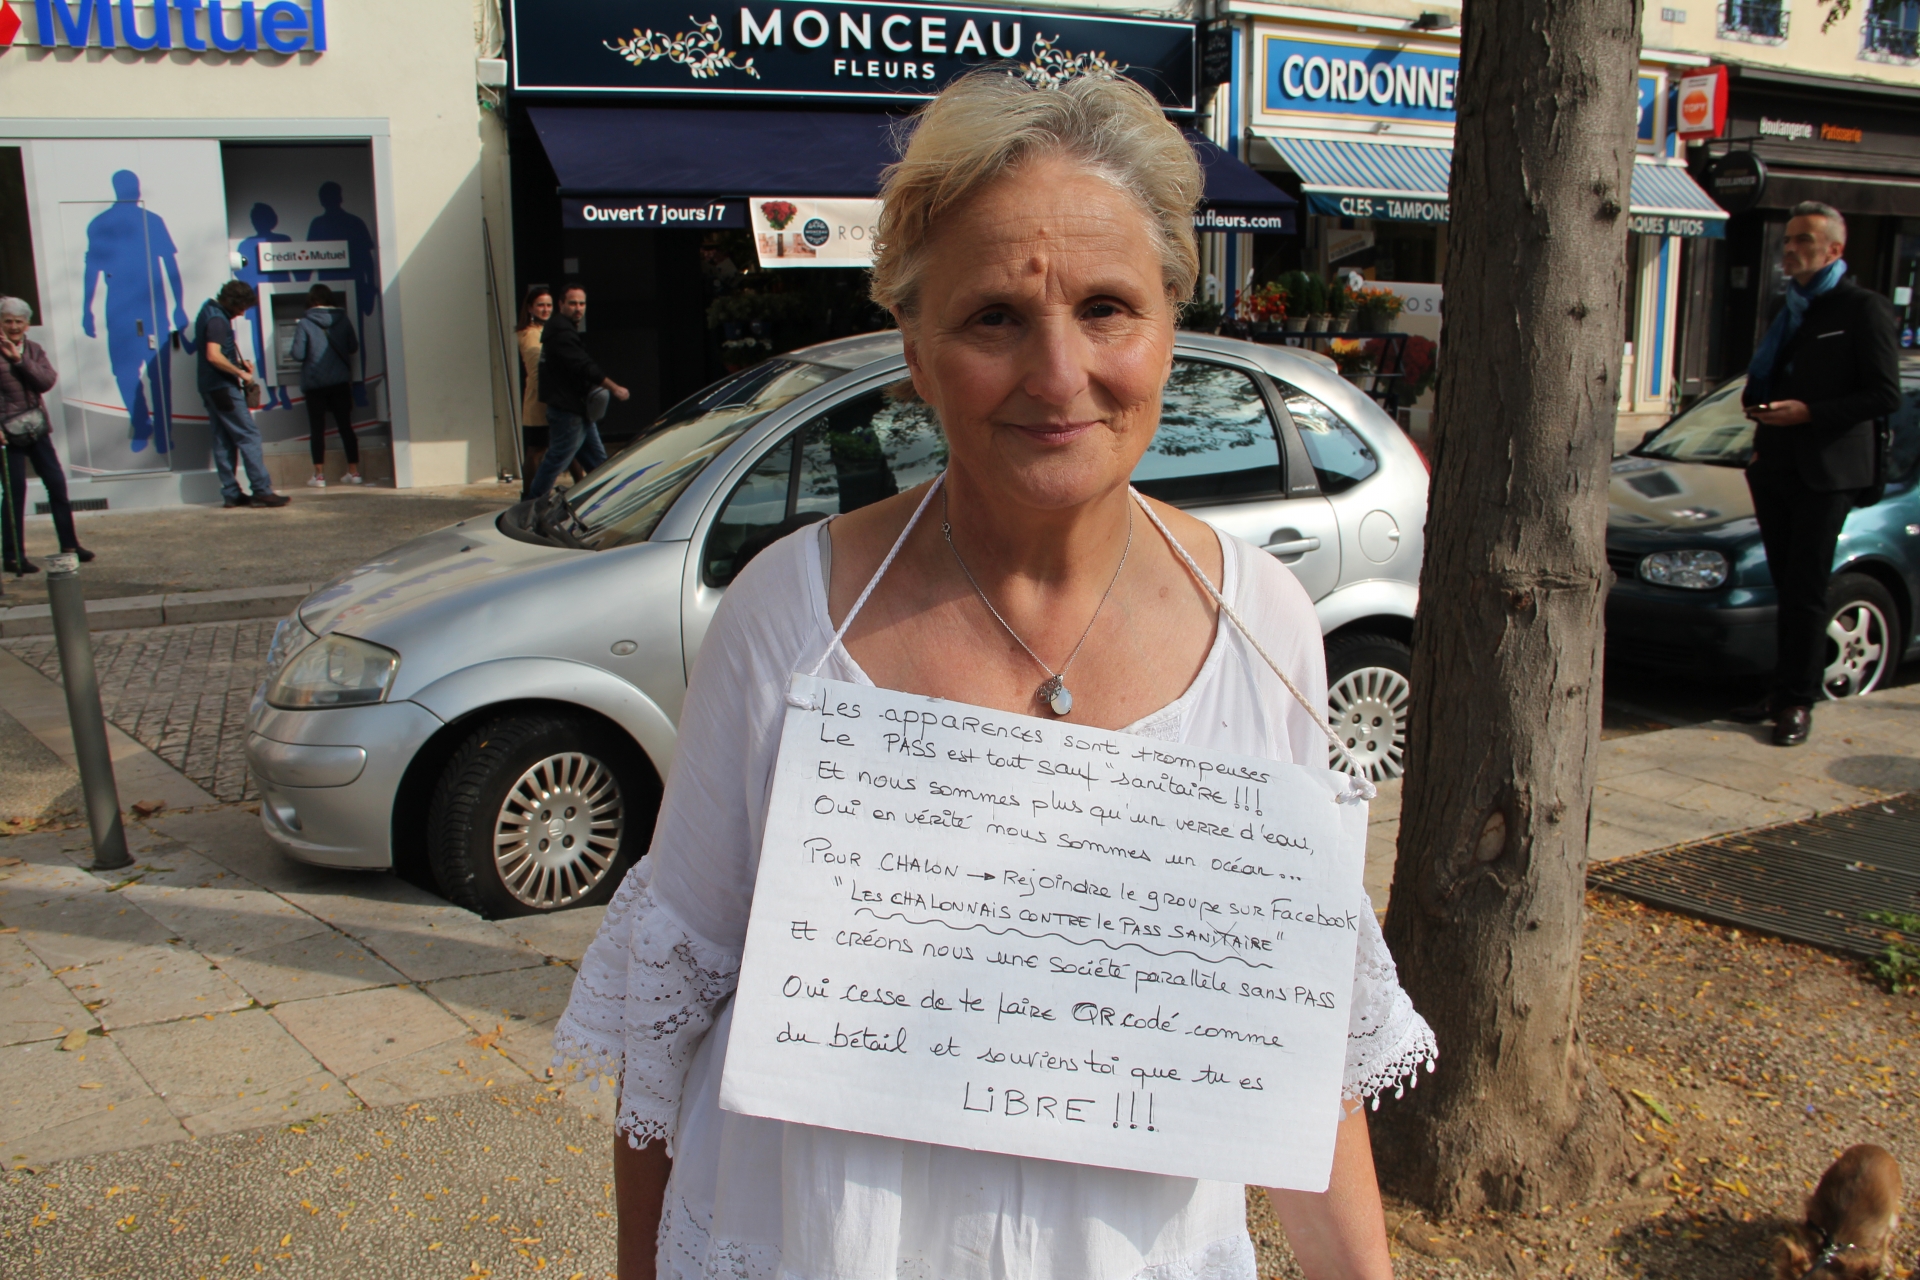 Mutuel
MONCEAU
FLEURS
CORDONNE
TOPY
Boulangerie Patisserie
Ouvert 7 jours/7
ROS
ufleurs.com
CLES - TAMPONS
AQUES AUTOS
Credit Mutuel
ROS
Les apparences sont trompeuses
Le PASS est tout sauf "sanitaire !!!
Et nous sommes plus qu'un verre d'eau,
Oui en vérité nous sommes un océan...
POUR CHALON → Rejoindre le groupe sur Facebook
"LES CHALONNAIS CONTRE le PASS SANITAIRE"
Et créons nous une société parallèle sans PASS
Oui cesse de te faire QR codé comme
du bétail et souviens toi que tu es
LiBRE !!!